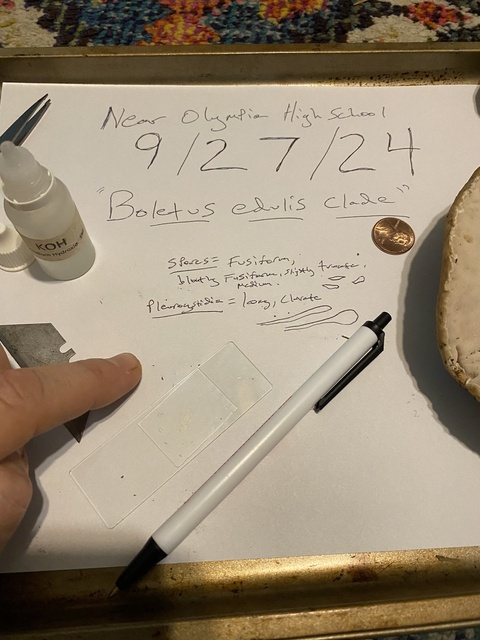 Near Olympia High School
9/27/24
"Boletus edulis clade"
Spores = Fusiform,
bluntly Fusiform, slightly truncate,
medium.
Pleurocystidia = long, clavate
KOH
Hydroxide